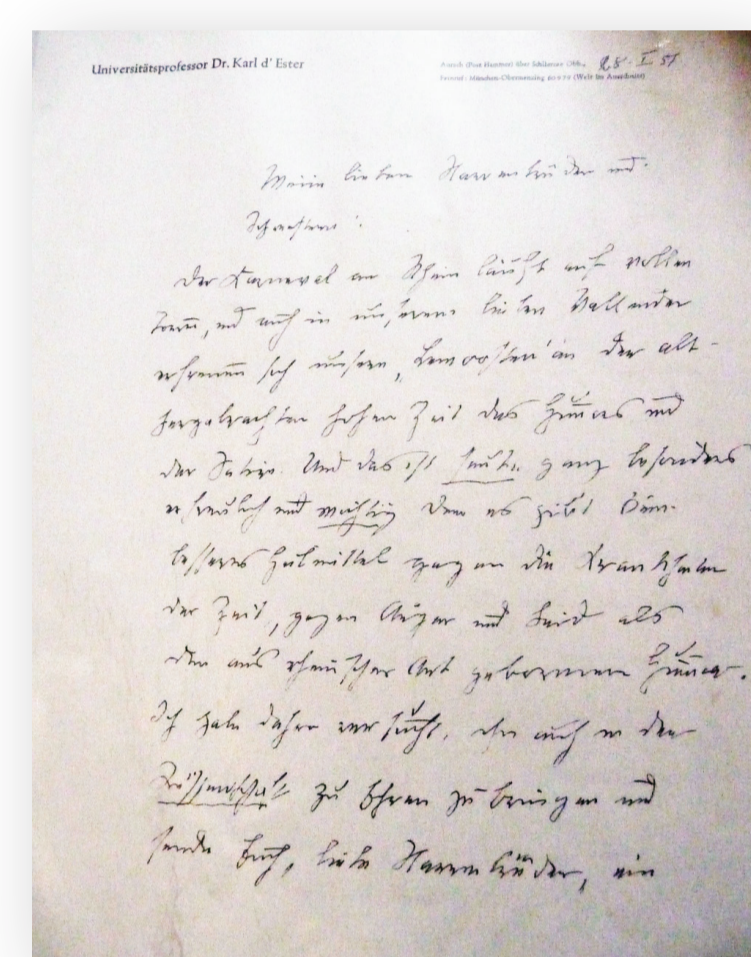 Universitätsprofessor Dr. Karl d' Ester
28. I 51
Meine lieben Narrenbrüder und
Schwestern!
Der Karneval am Rhein läuft auf vollen
Touren, und auch in unserem lieben Vallendar
erfreuen sich unsere an der alt-
hergebrachten hohen Zeit des Humors und
der Satire. Und das ist heute ganz besonders
erfreulich und wichtig denn es gibt kein
besseres Heilmittel gegen die Krankheiten
der Zeit, gegen Ärger und Leid als
den aus rheinischer Art geborenen Humor.
Ich habe daher versucht, ihn auch in der
Wissenschaft zu Ehren zu bringen und
sende Euch, liebe Narrenbrüder, ein